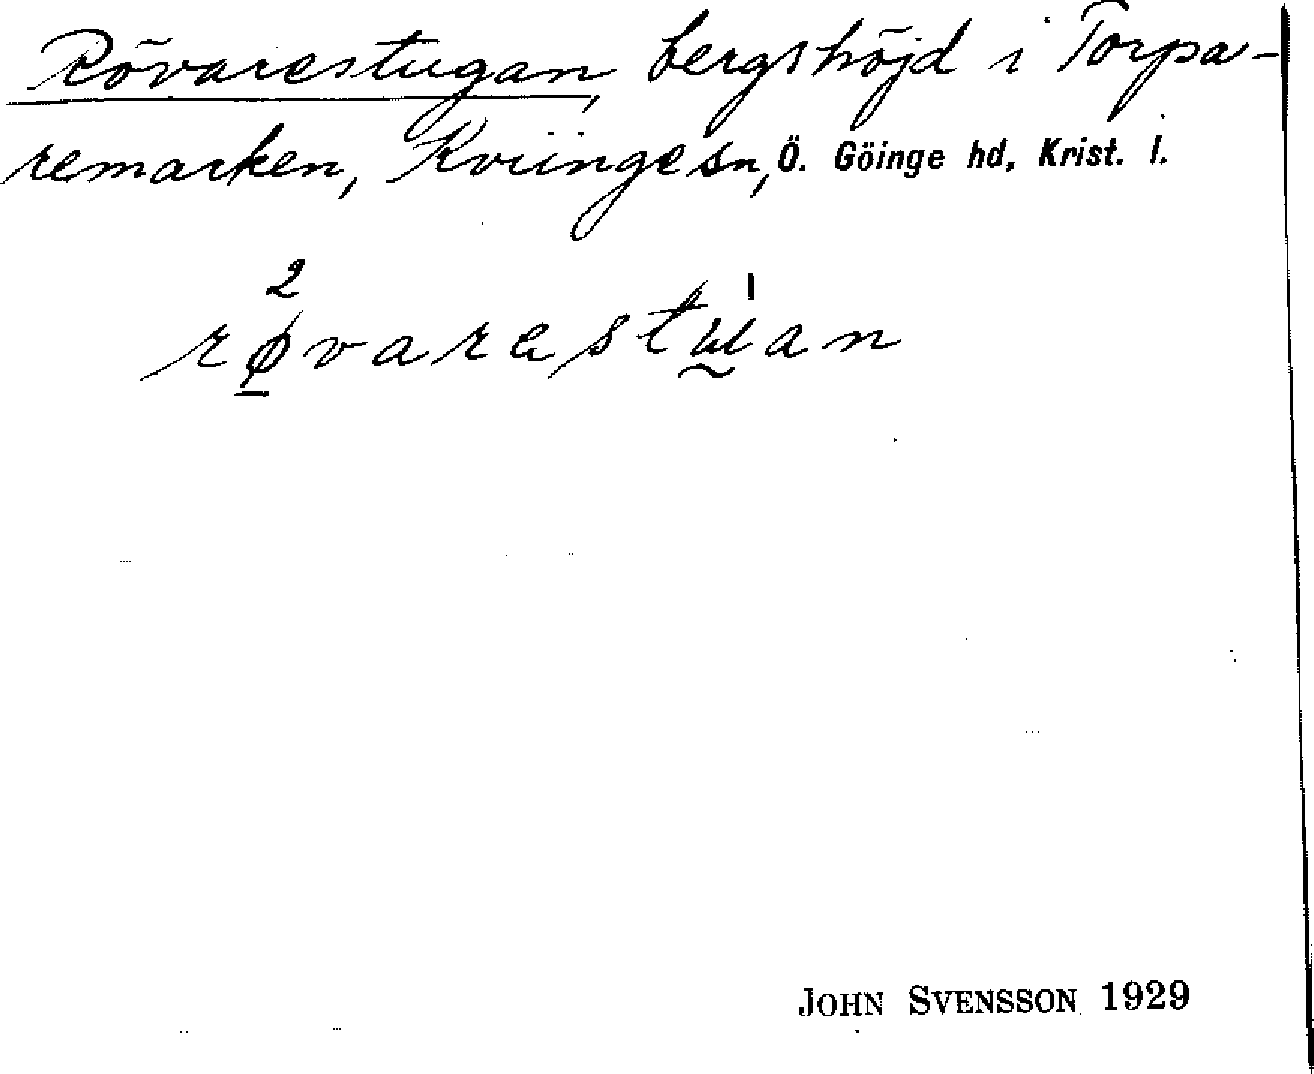 Rövarestugan, bergshöjd i Torpa-
remarken, Kviinge sn, Ö. Göinge hd, Krist. l.
2 ı
røvarestɯan
JOHN SVENSSON 1929